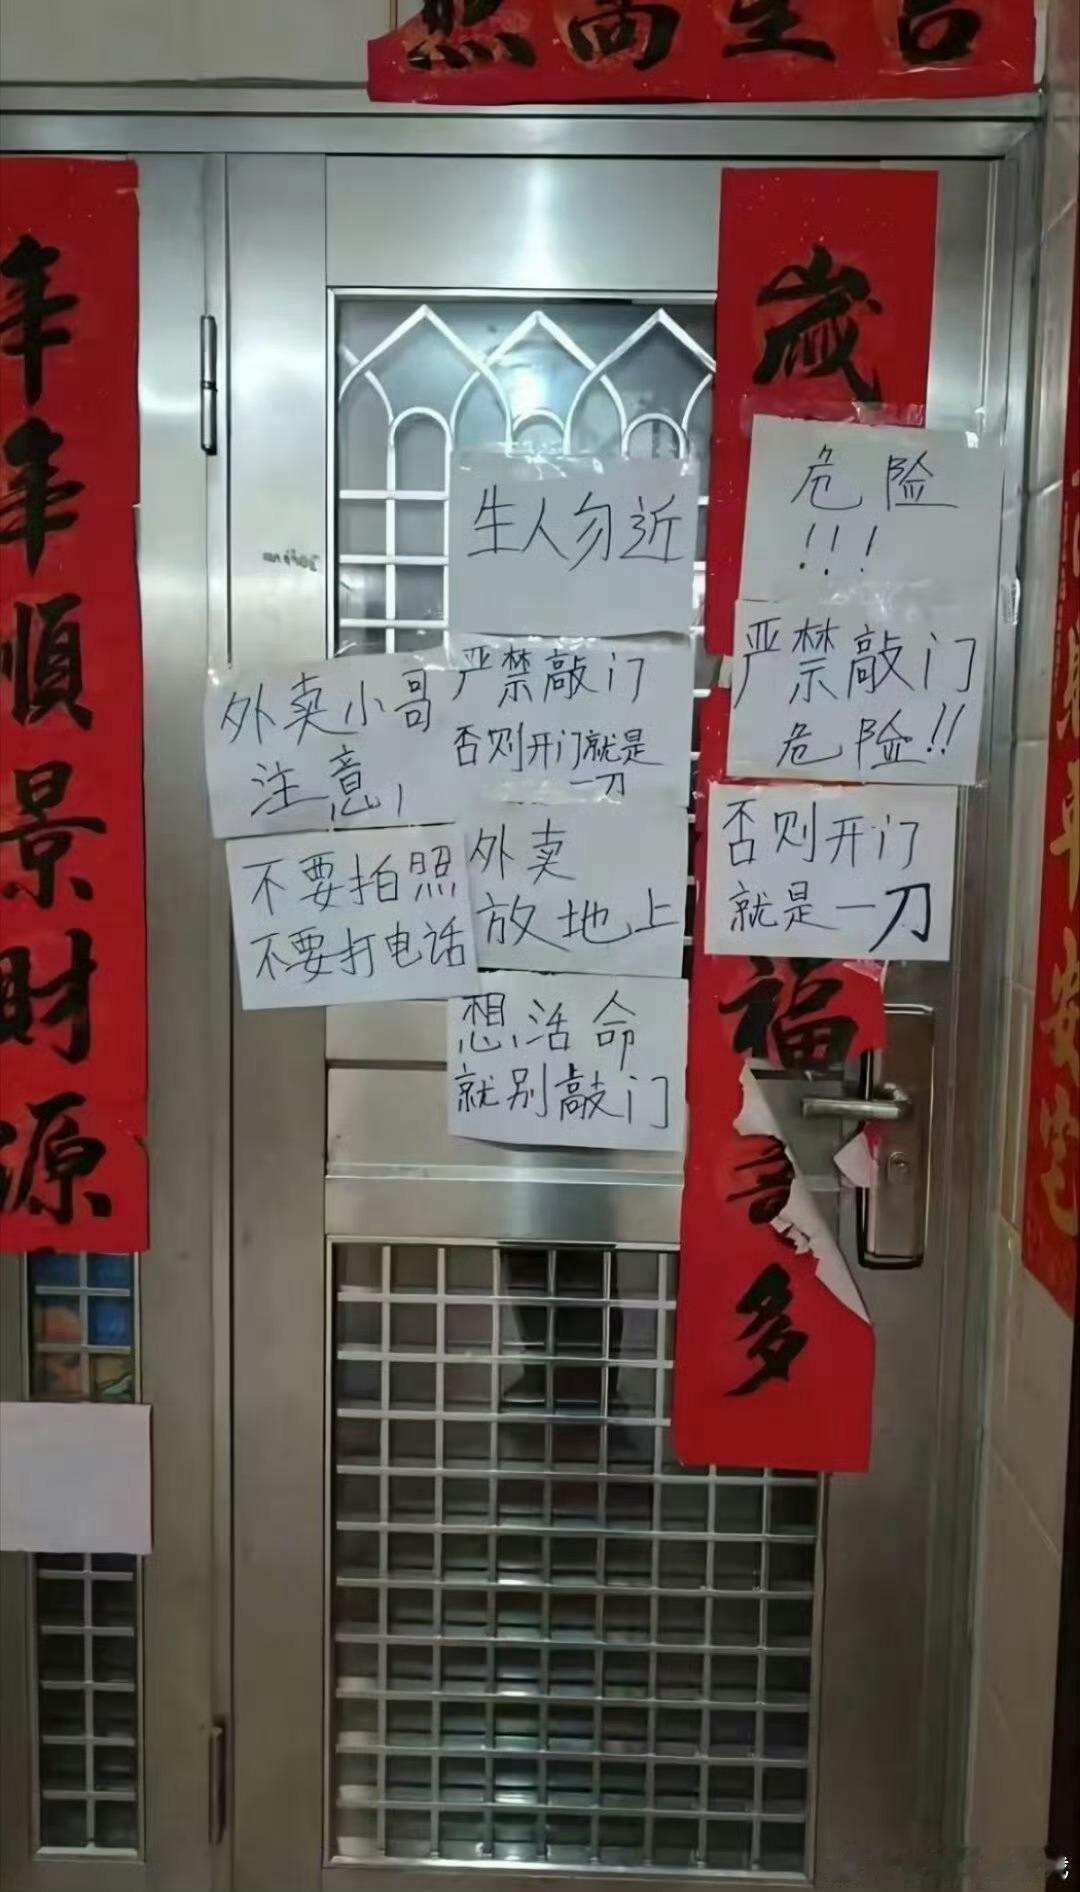 照高生吉
年年順景財源
歲
福
多
生人勿近
危险
!!!
严禁敲门
危险!!
否则开门
就是一刀
外卖小哥
注意,
严禁敲门
否则开门就是
一刀
不要拍照
不要打电话
外卖
放地上
想活命
就别敲门
平安宅